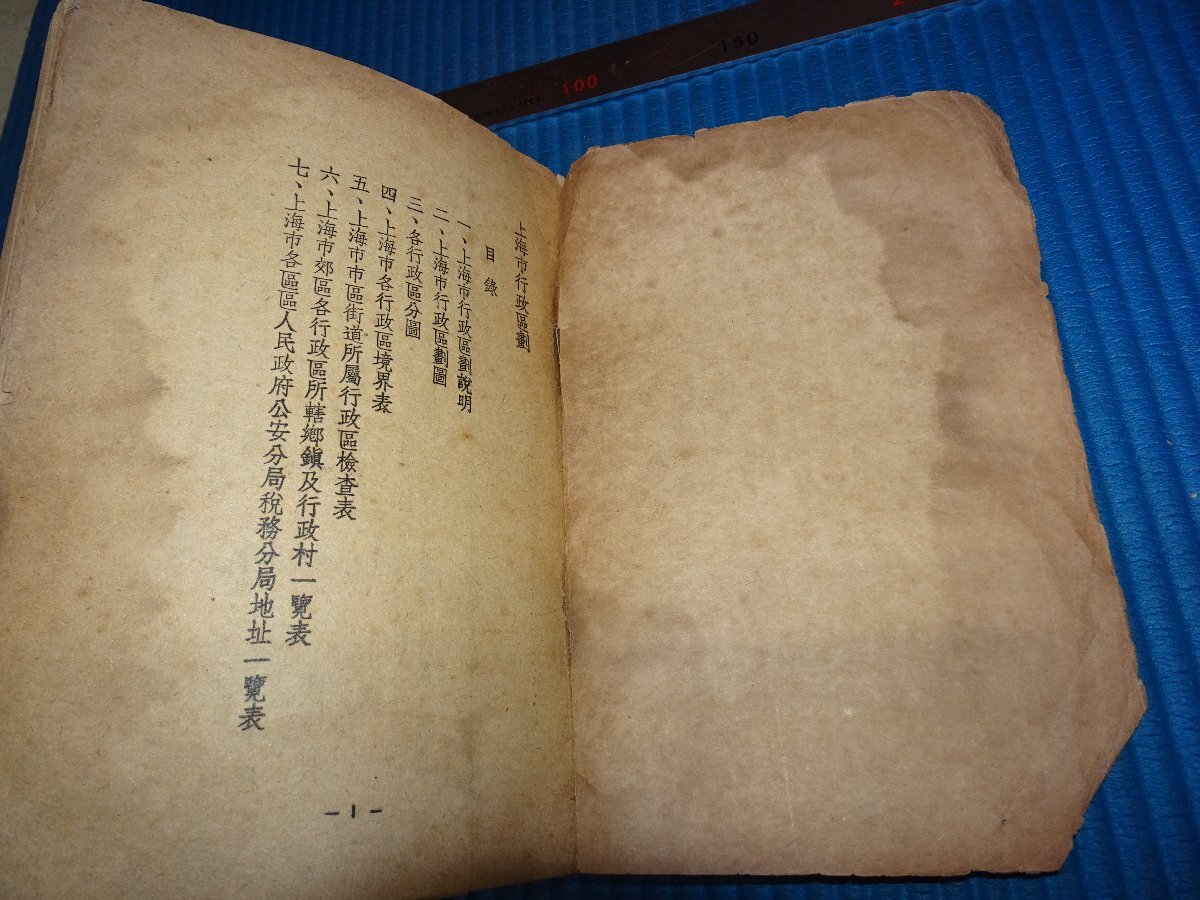 上海市行政區劃
目錄
一、上海市行政區劃說明
二、上海市行政區劃圖
三、各行政區分圖
四、上海市各行政區境界表
五、上海市市區街道所屬行政區檢查表
六、上海市郊區各行政區所轄鄉鎮及行政村一覽表
七、上海市各區區人民政府公安分局稅務分局地址一覽表
– 1 –
100
150